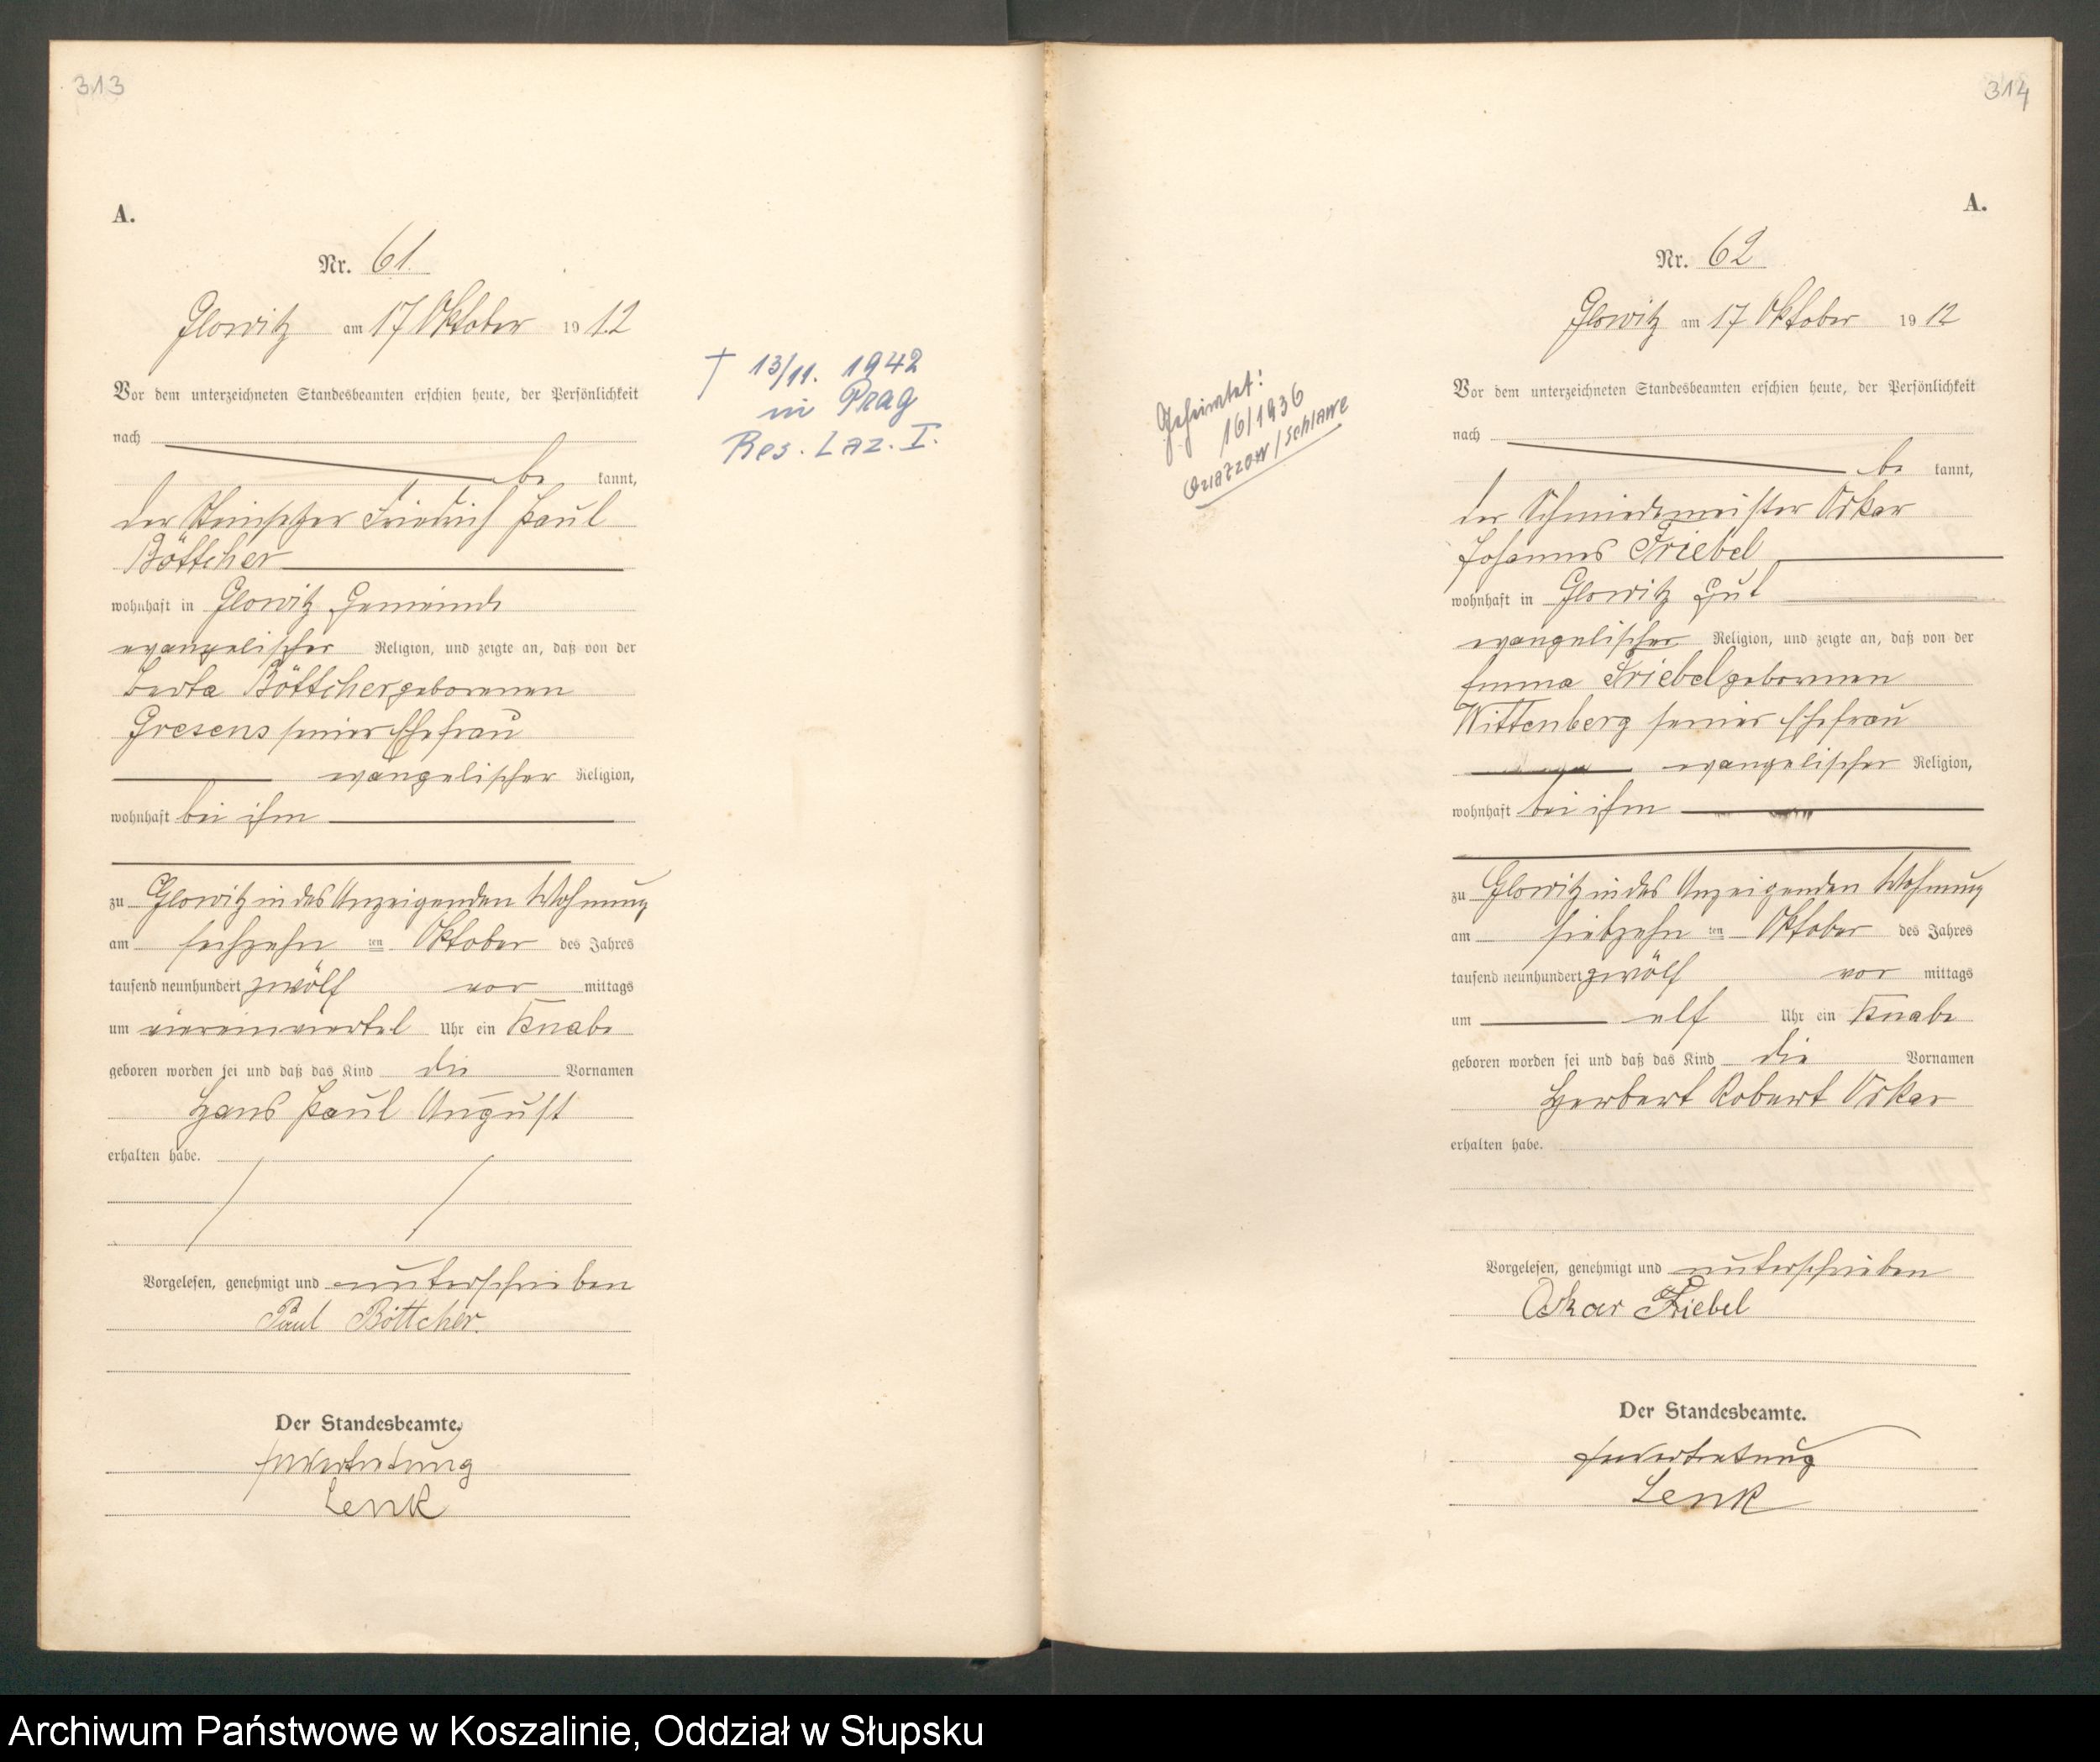 313
A.
Nr. 61.
Glowitz am 17 Oktober 1912
Vor dem unterzeichneten Standesbeamten erschien heute, der Persönlichkeit
nach
be kannt,
der Steinsetzer Friedrich Paul
Böttcher
wohnhaft in Glowitz Gemeinde
evangelischer Religion, und zeigte an, daß von der
Berta Böttcher geborenen
Gresens seiner Ehefrau
evangelischer Religion,
wohnhaft bei ihm
zu Glowitz in des Anzeigenden Wohnung
am sechzehn ten Oktober des Jahres
tausend neunhundert zwölf vor mittags
um viereinviertel Uhr ein Knabe
geboren worden sei und daß das Kind die Vornamen
Hans Paul August
erhalten habe.
Vorgelesen, genehmigt und unterschrieben
Paul Böttcher.
Der Standesbeamte.
In Vertretung
Lenk
† 13/11. 1942
in Prag
Res. Laz. I.
314
A.
Nr. 62
Glowitz am 17 Oktober 1912
Geheiratet:
16/1936
Quatzow/Schlawe
Vor dem unterzeichneten Standesbeamten erschien heute, der Persönlichkeit
nach
be kannt,
der Schmiedemeister Oskar
Johannes Friebel
wohnhaft in Glowitz Gut
evangelischer Religion, und zeigte an, daß von der
Emma Friebel geborenen
Wittenberg seiner Ehefrau
evangelischer Religion,
wohnhaft bei ihm
zu Glowitz in des Anzeigenden Wohnung
am siebzehn ten Oktober des Jahres
tausend neunhundert zwölf vor mittags
um elf Uhr ein Knabe
geboren worden sei und daß das Kind die Vornamen
Herbert Robert Oskar
erhalten habe.
Vorgelesen, genehmigt und unterschrieben
Oskar Friebel
Der Standesbeamte.
In Vertretung
Lenk
Archiwum Państwowe w Koszalinie, Oddział w Słupsku